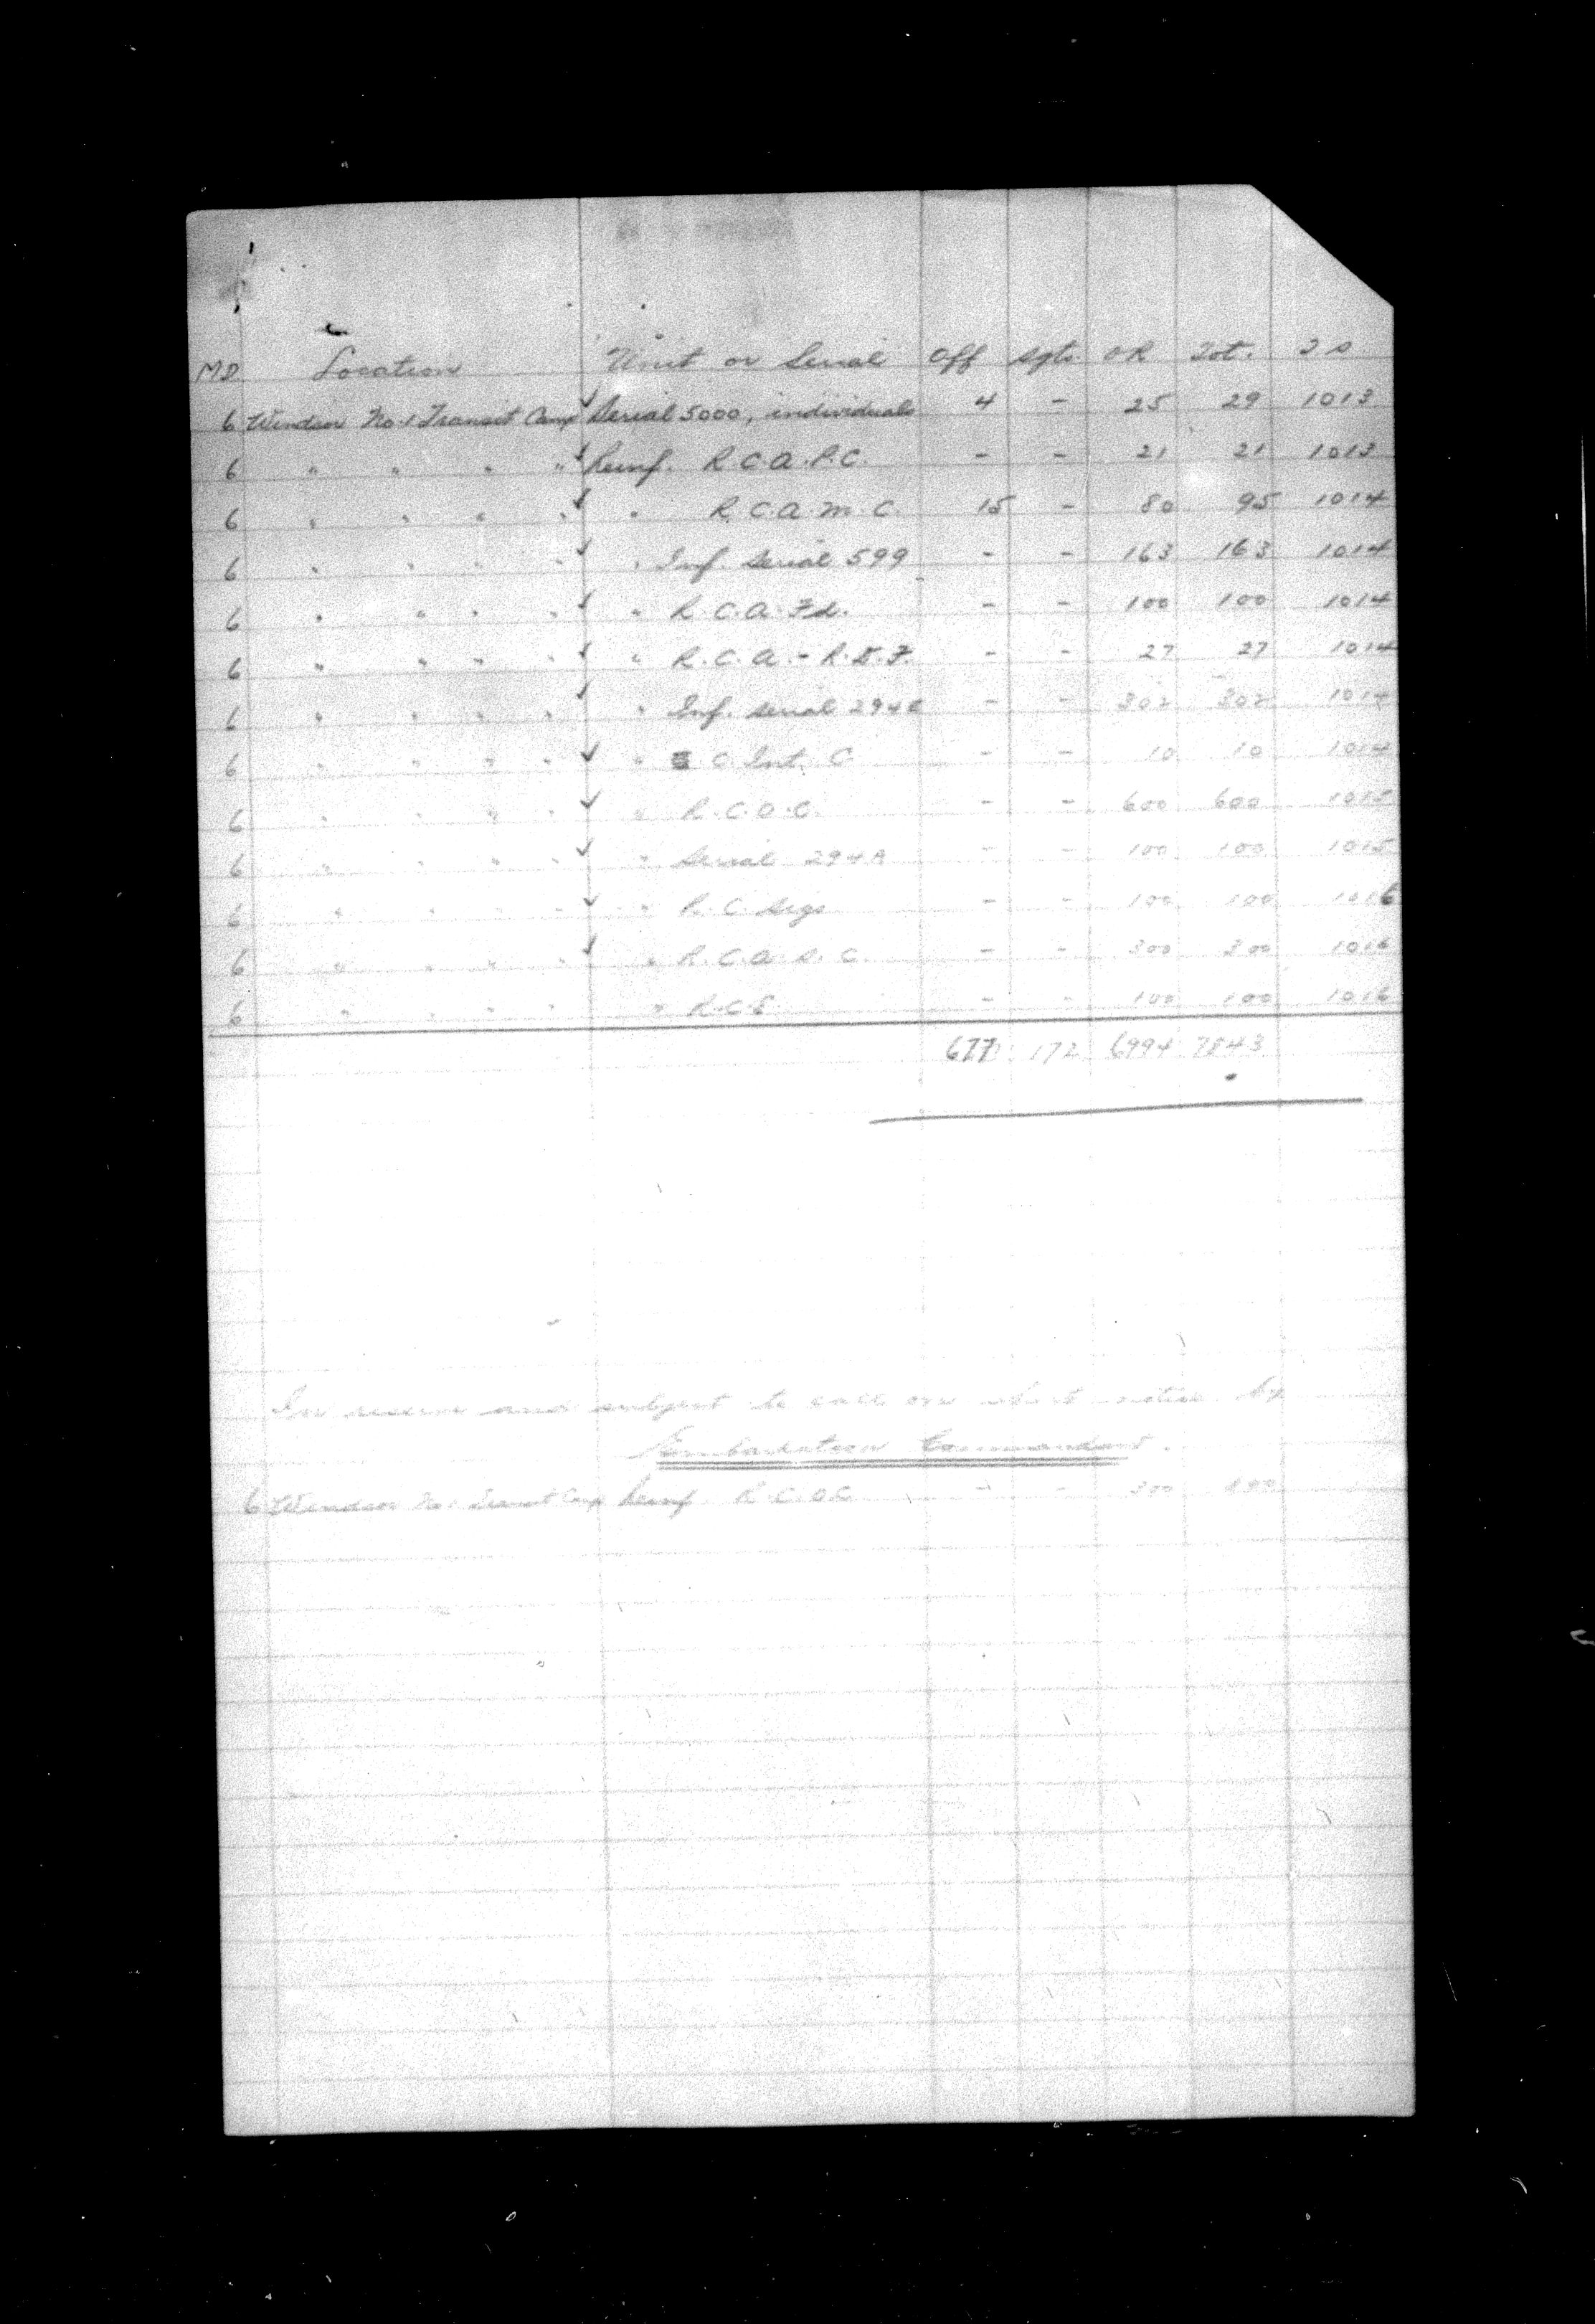 MD Location Unit or Serial Off Sgts OR Tot. T.S.
6 Windsor No.1 Transit Camp ✓ Serial 5000, individuals 4 - 25 29 1013
6 " " " " ✓ Reinf. R.C.A.P.C. - - 21 21 1013
6 " " " " ✓ " R.C.A.M.C. 15 - 80 95 1014
6 " " " " ✓ " Inf. Serial 599 - - 163 163 1014
6 " " " " ✓ " R.C.A. Fd. - - 100 100 1014
6 " " " " ✓ " R.C.A. - R.D.F. - - 27 27 1014
6 " " " " ✓ " Inf. Serial 294 - - 302 302 1014
6 " " " " ✓ " C. Int. C - - 10 10 1014
6 " " " " ✓ " R.C.O.C. - - 600 600 1015
6 " " " " ✓ " Serial 294A - - 100 100 1015
6 " " " " ✓ " R.C. Sigs - - 100 100 1016
6 " " " " ✓ " R.C.A.S.C. - - 300 300 1016
6 " " " " " R.C.E. - - 100 100 1016
677 172 6994 7843
In reserve and subject to call on short notice by
Embarkation Commandant.
6 Windsor No.1 Transit Camp Reinf. R.C.O.C. - -